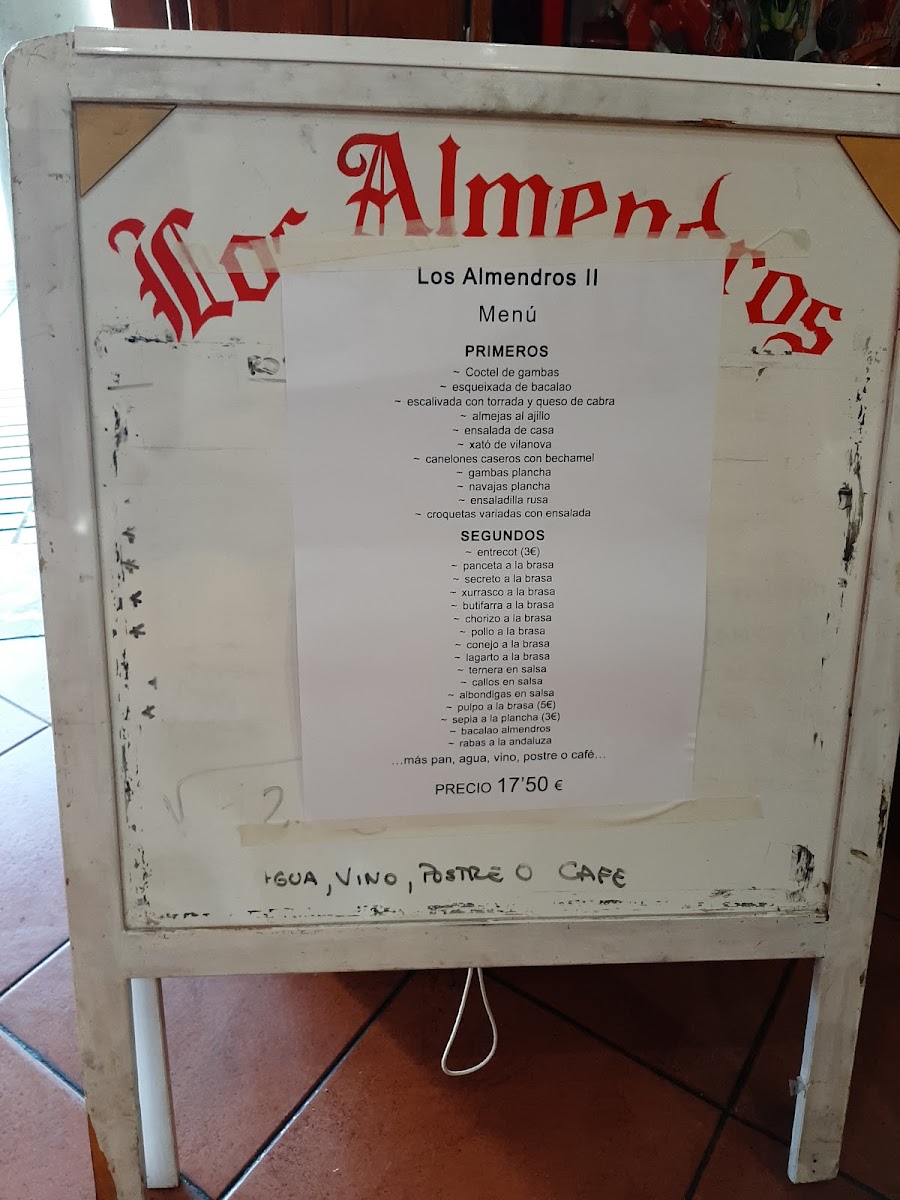 Los Almendros
Los Almendros II
Menú
PRIMEROS
~ Coctel de gambas
~ esqueixada de bacalao
~ escalivada con torrada y queso de cabra
~ almejas al ajillo
~ ensalada de casa
~ xató de vilanova
~ canelones caseros con bechamel
~ gambas plancha
~ navajas plancha
~ ensaladilla rusa
~ croquetas variadas con ensalada
SEGUNDOS
~ entrecot (3€)
~ panceta a la brasa
~ secreto a la brasa
~ xurrasco a la brasa
~ butifarra a la brasa
~ chorizo a la brasa
~ pollo a la brasa
~ conejo a la brasa
~ lagarto a la brasa
~ ternera en salsa
~ callos en salsa
~ albondigas en salsa
~ pulpo a la brasa (5€)
~ sepia a la plancha (3€)
~ bacalao almendros
~ rabas a la andaluza
...más pan, agua, vino, postre o café...
PRECIO 17'50 €
AGUA, VINO, POSTRE O CAFE